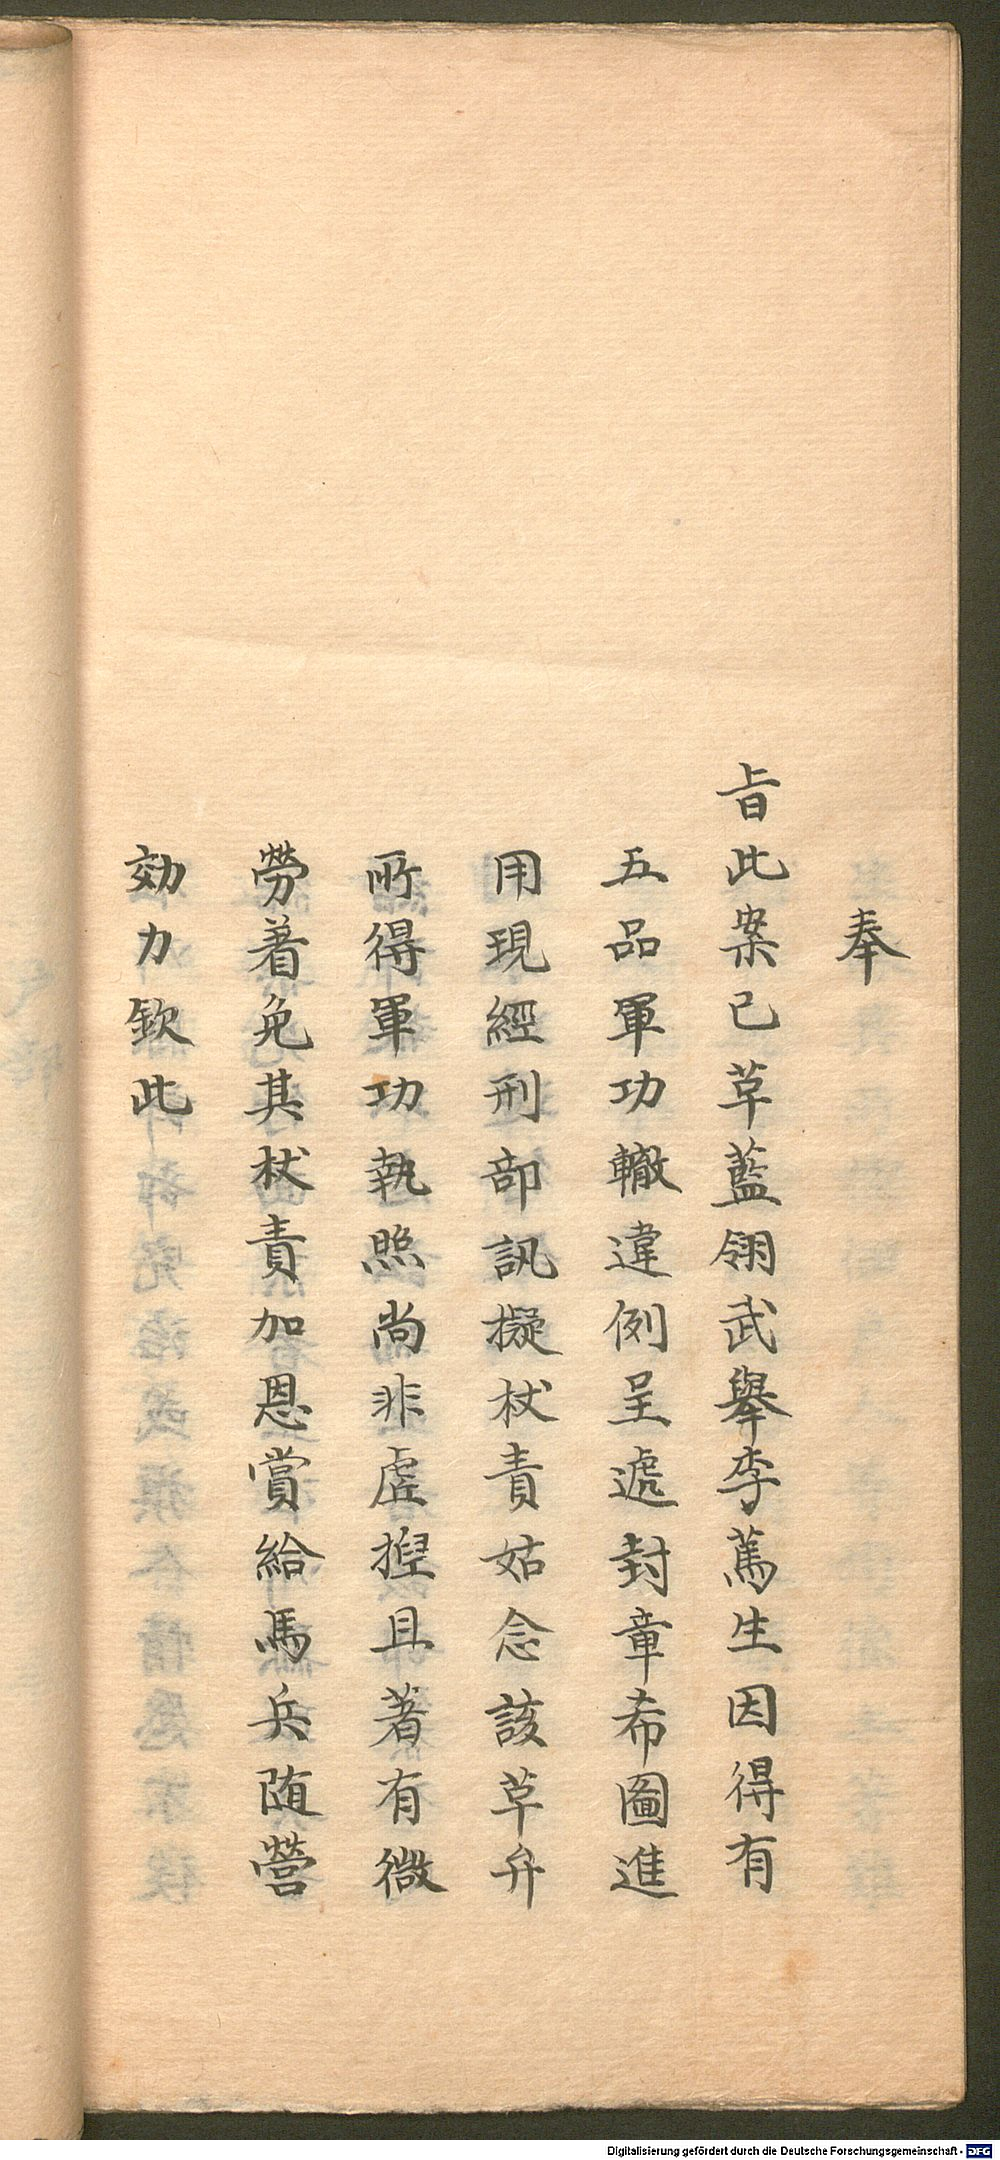 奉
旨此案已革藍翎武舉李蔿生因得有
五品軍功轍違例呈遞封章希圖進
用現經刑部訊擬杖責姑念該革弁
所得軍功執照尚非虛揑且著有微
勞着免其杖責加恩賞給馬兵随營
効力欽此
Digitalisierung gefördert durch die Deutsche Forschungsgemeinschaft - DFG